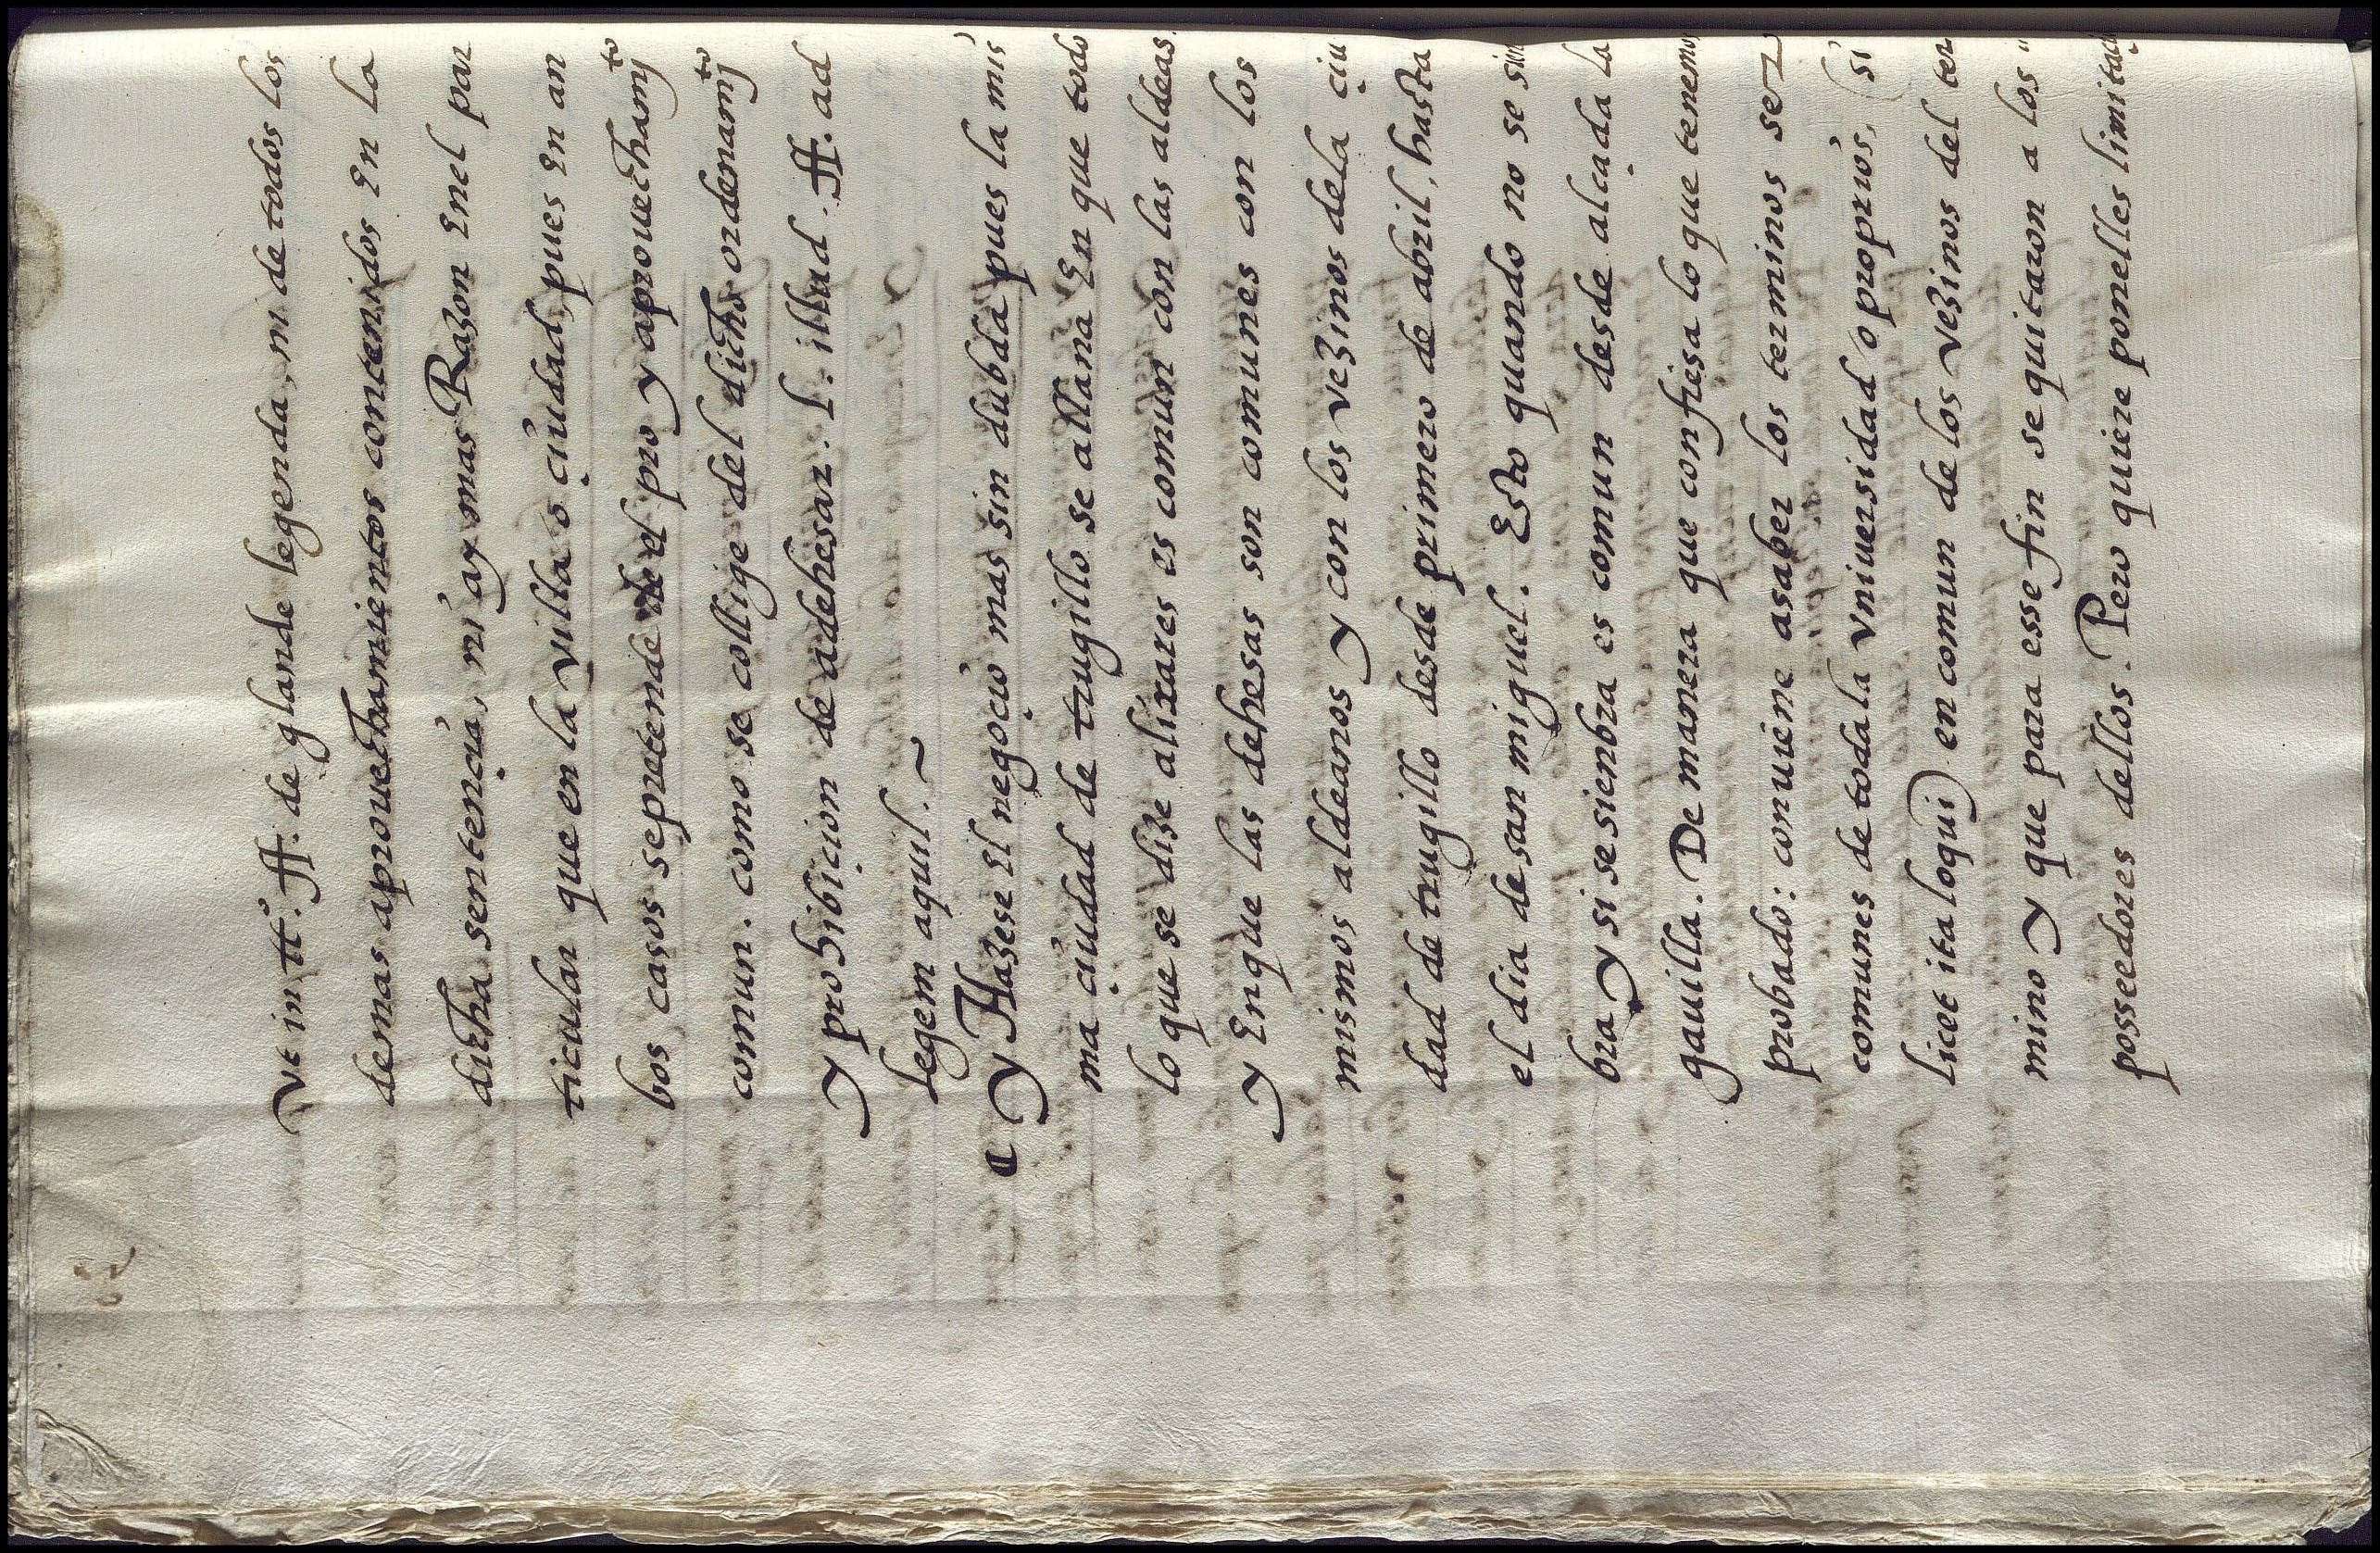 Vt in tt.º ff. de glande legenda, ni de todos los
demas aprouechamientos contenidos en la
dicha sentençia, ni ay mas Razon enel par
ticular que en la villa o çiudad, pues en an
bos casos sepretende el pro y aprouechamjto
comun. como se collige del dicho ordenamjto
y prohibiçion de adehesar. l. illud. ff. ad
legem aquil. ~
y Hazese el negoçio mas sin dubda pues la mis
ma çiudad de trugillo se allana en que todo
lo que se dize alixares es comun con las aldeas.
y enque las dehesas son comunes con los
mismos aldeanos y con los vezinos dela çiu
dad de trugillo desde primero de abril, hasta
el dia de san miguel. Esto quando no se sien
bra y si se sienbra es comun desde alçada la
gauilla. De manera que confiesa lo que tenemos
probado: conuiene asaber los terminos ser
comunes de toda la vniuersidad o proprios, (si
licet ita loqui) en comun de los vezinos del ter
mino y que para esse fin se quitaron a los
possedores dellos. Pero quiere ponelles limitaçi